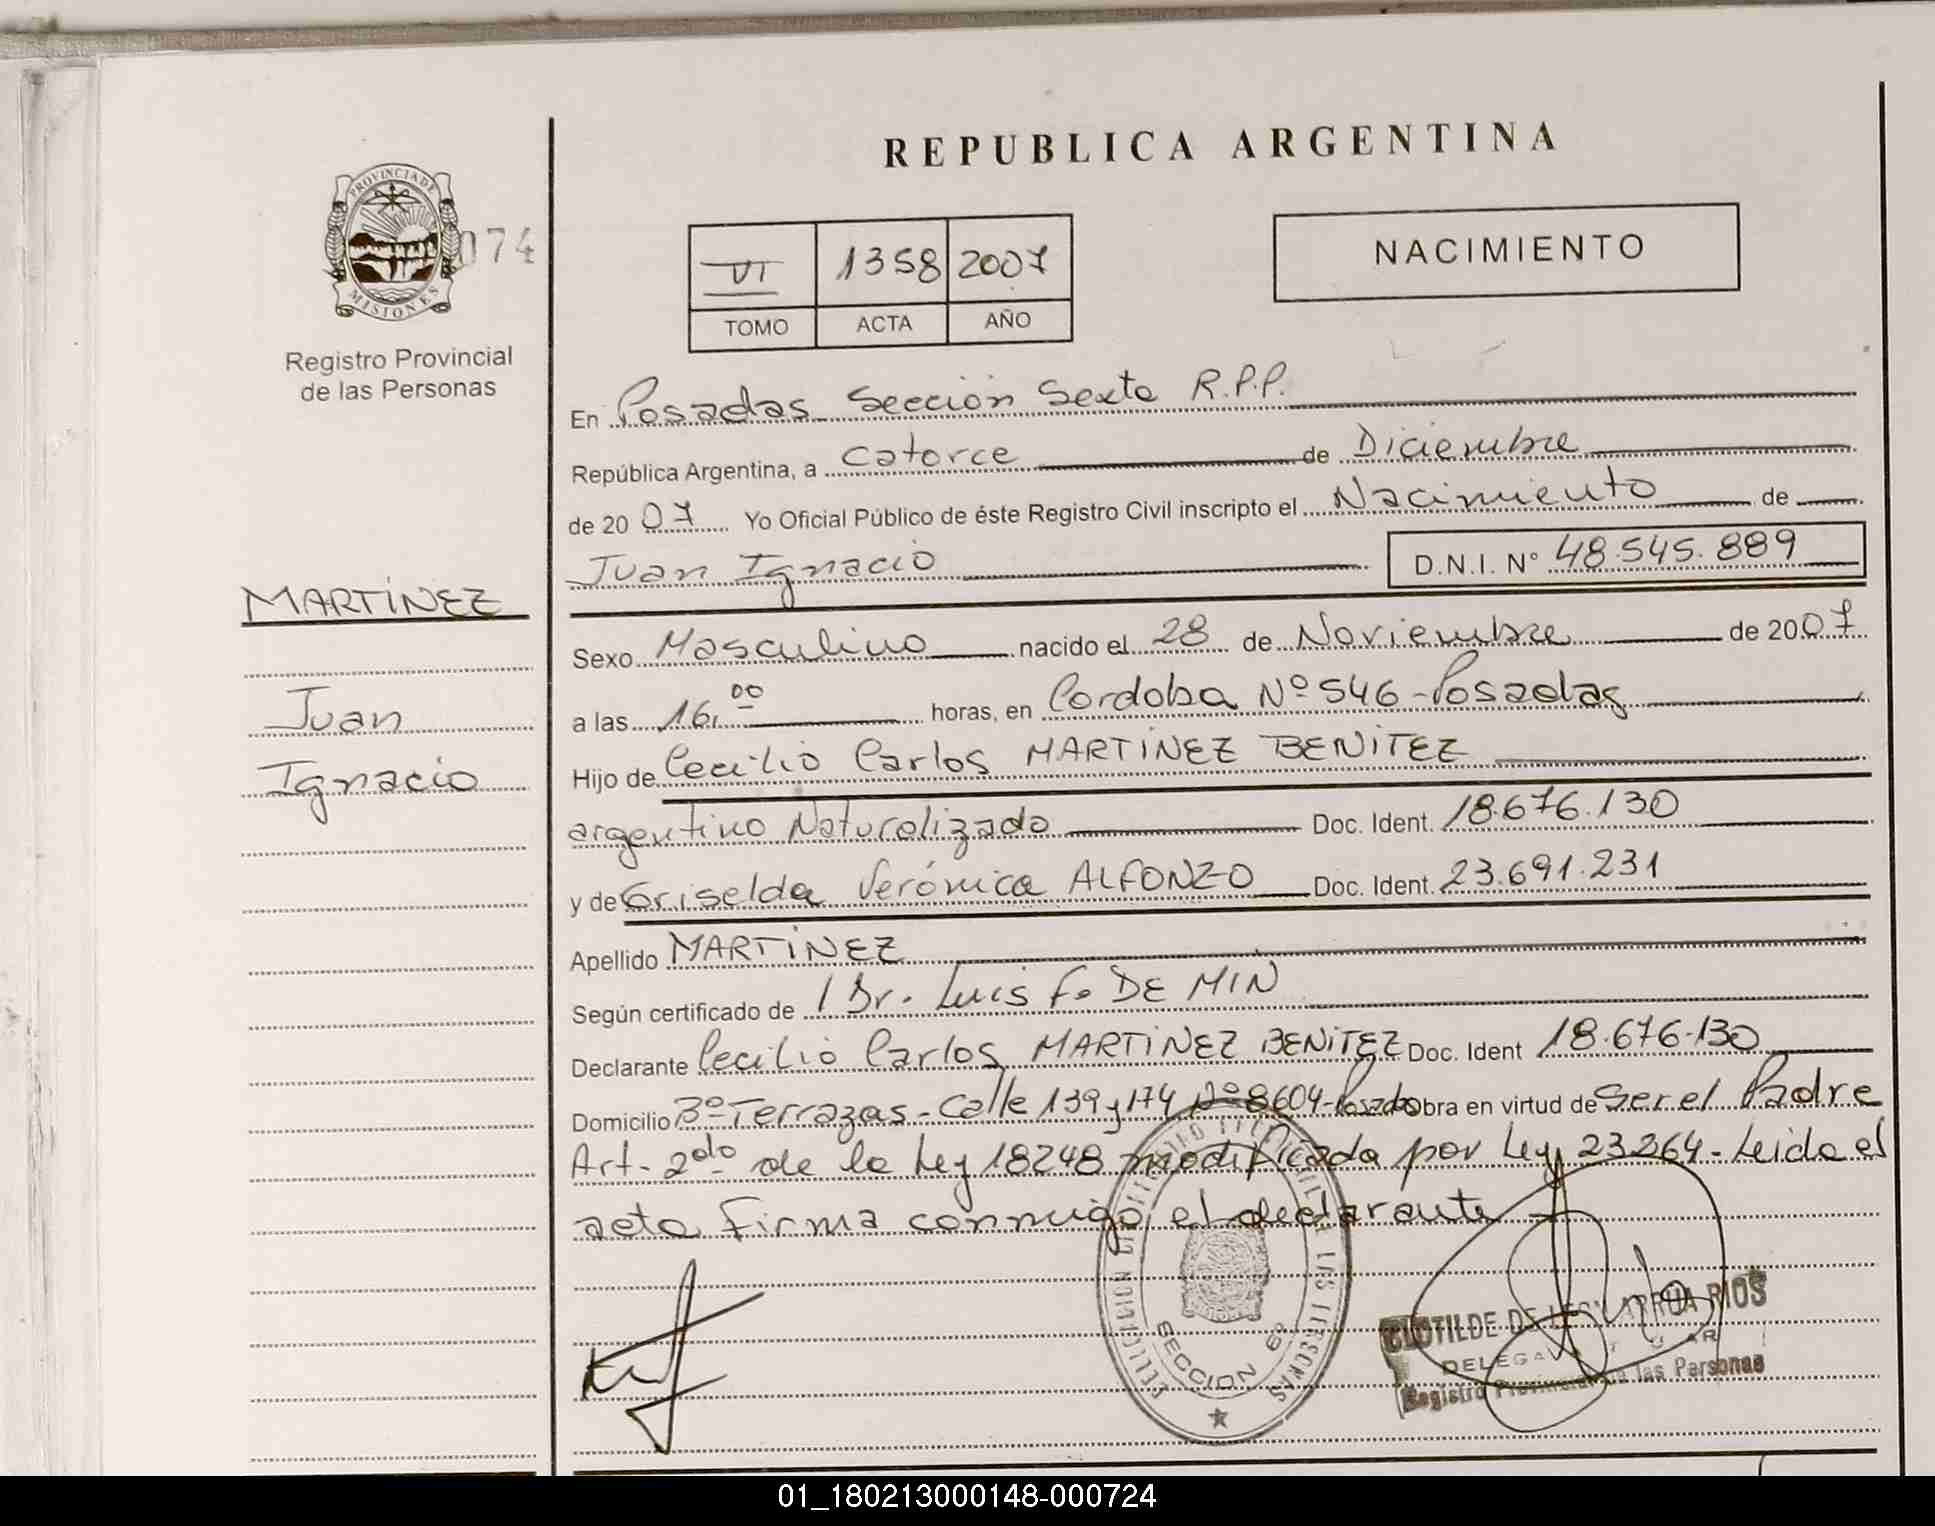 REPUBLICA ARGENTINA
PROVINCIA DE
MISIONES
074
Registro Provincial
de las Personas
VI 1358 2007
TOMO ACTA AÑO
NACIMIENTO
En Posadas Sección Sexta R.P.P.
República Argentina, a catorce de Diciembre
de 2007 Yo Oficial Público de éste Registro Civil inscripto el Nacimiento de
Juan Ignacio D.N.I. Nº 48.545.889
MARTÍNEZ
Juan
Ignacio
Sexo Masculino nacido el 28 de Noviembre de 2007
a las 16,00 horas, en Cordoba Nº 546 - Posadas
Hijo de Cecilio Carlos MARTINEZ BENITEZ
argentino Naturalizado Doc. Ident. 18.676.130
y de Griselda Verónica ALFONZO Doc. Ident. 23.691.231
Apellido MARTÍNEZ
Según certificado de Dr. Luis F. DE MIN
Declarante Cecilio Carlos MARTINEZ BENITEZ Doc. Ident 18.676.130
Domicilio Bº Terrazas - Calle 139 y 174 Nº 8604 - Posadas obra en virtud de Ser el Padre
Art. 2do de la Ley 18248 modificada por Ley 23264 - Leida el
acta firma conmigo el declarante
SECCION 6º
DE LAS PERSONAS
CLOTILDE DE LEON ARRUA RIOS
Registro Provincial de las Personas
01_180213000148-000724